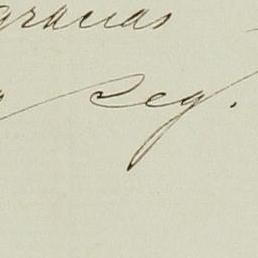 gracias
seg.